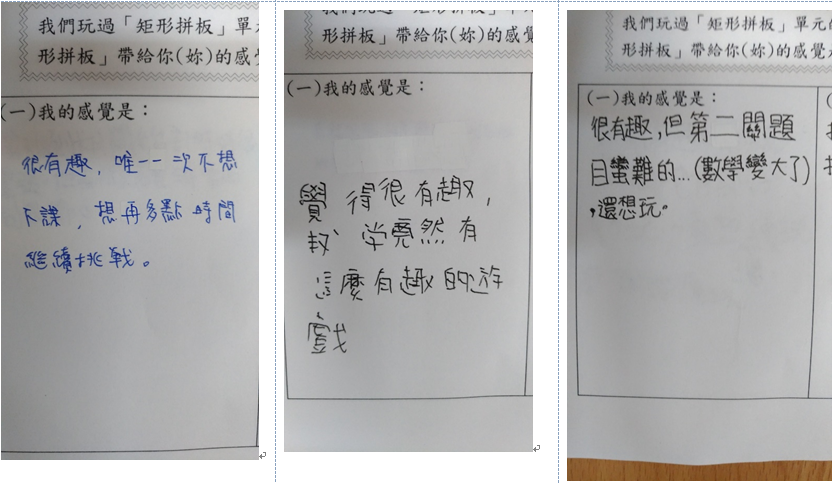 我們玩過「矩形拼板」單
形拼板」帶給你(妳)的感
(一)我的感覺是：
很有趣，唯一一次不想
下課，想再多點時間
繼續挑戰。
形拼板」帶給你(妳)的感
(一)我的感覺是：
覺得很有趣，
数学竟然有
這麼有趣的遊
戲
我們玩過「矩形拼板」單元
形拼板」帶給你(妳)的感覺
(一)我的感覺是：
很有趣,但第二關題
目蠻難的...(數學變大了)
,還想玩。